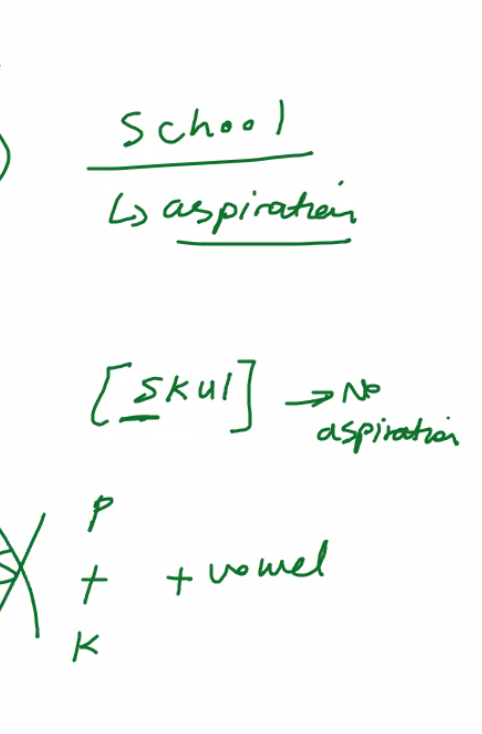 School
↳ aspiration
[skul] → No
aspiration
P
t + vowel
K